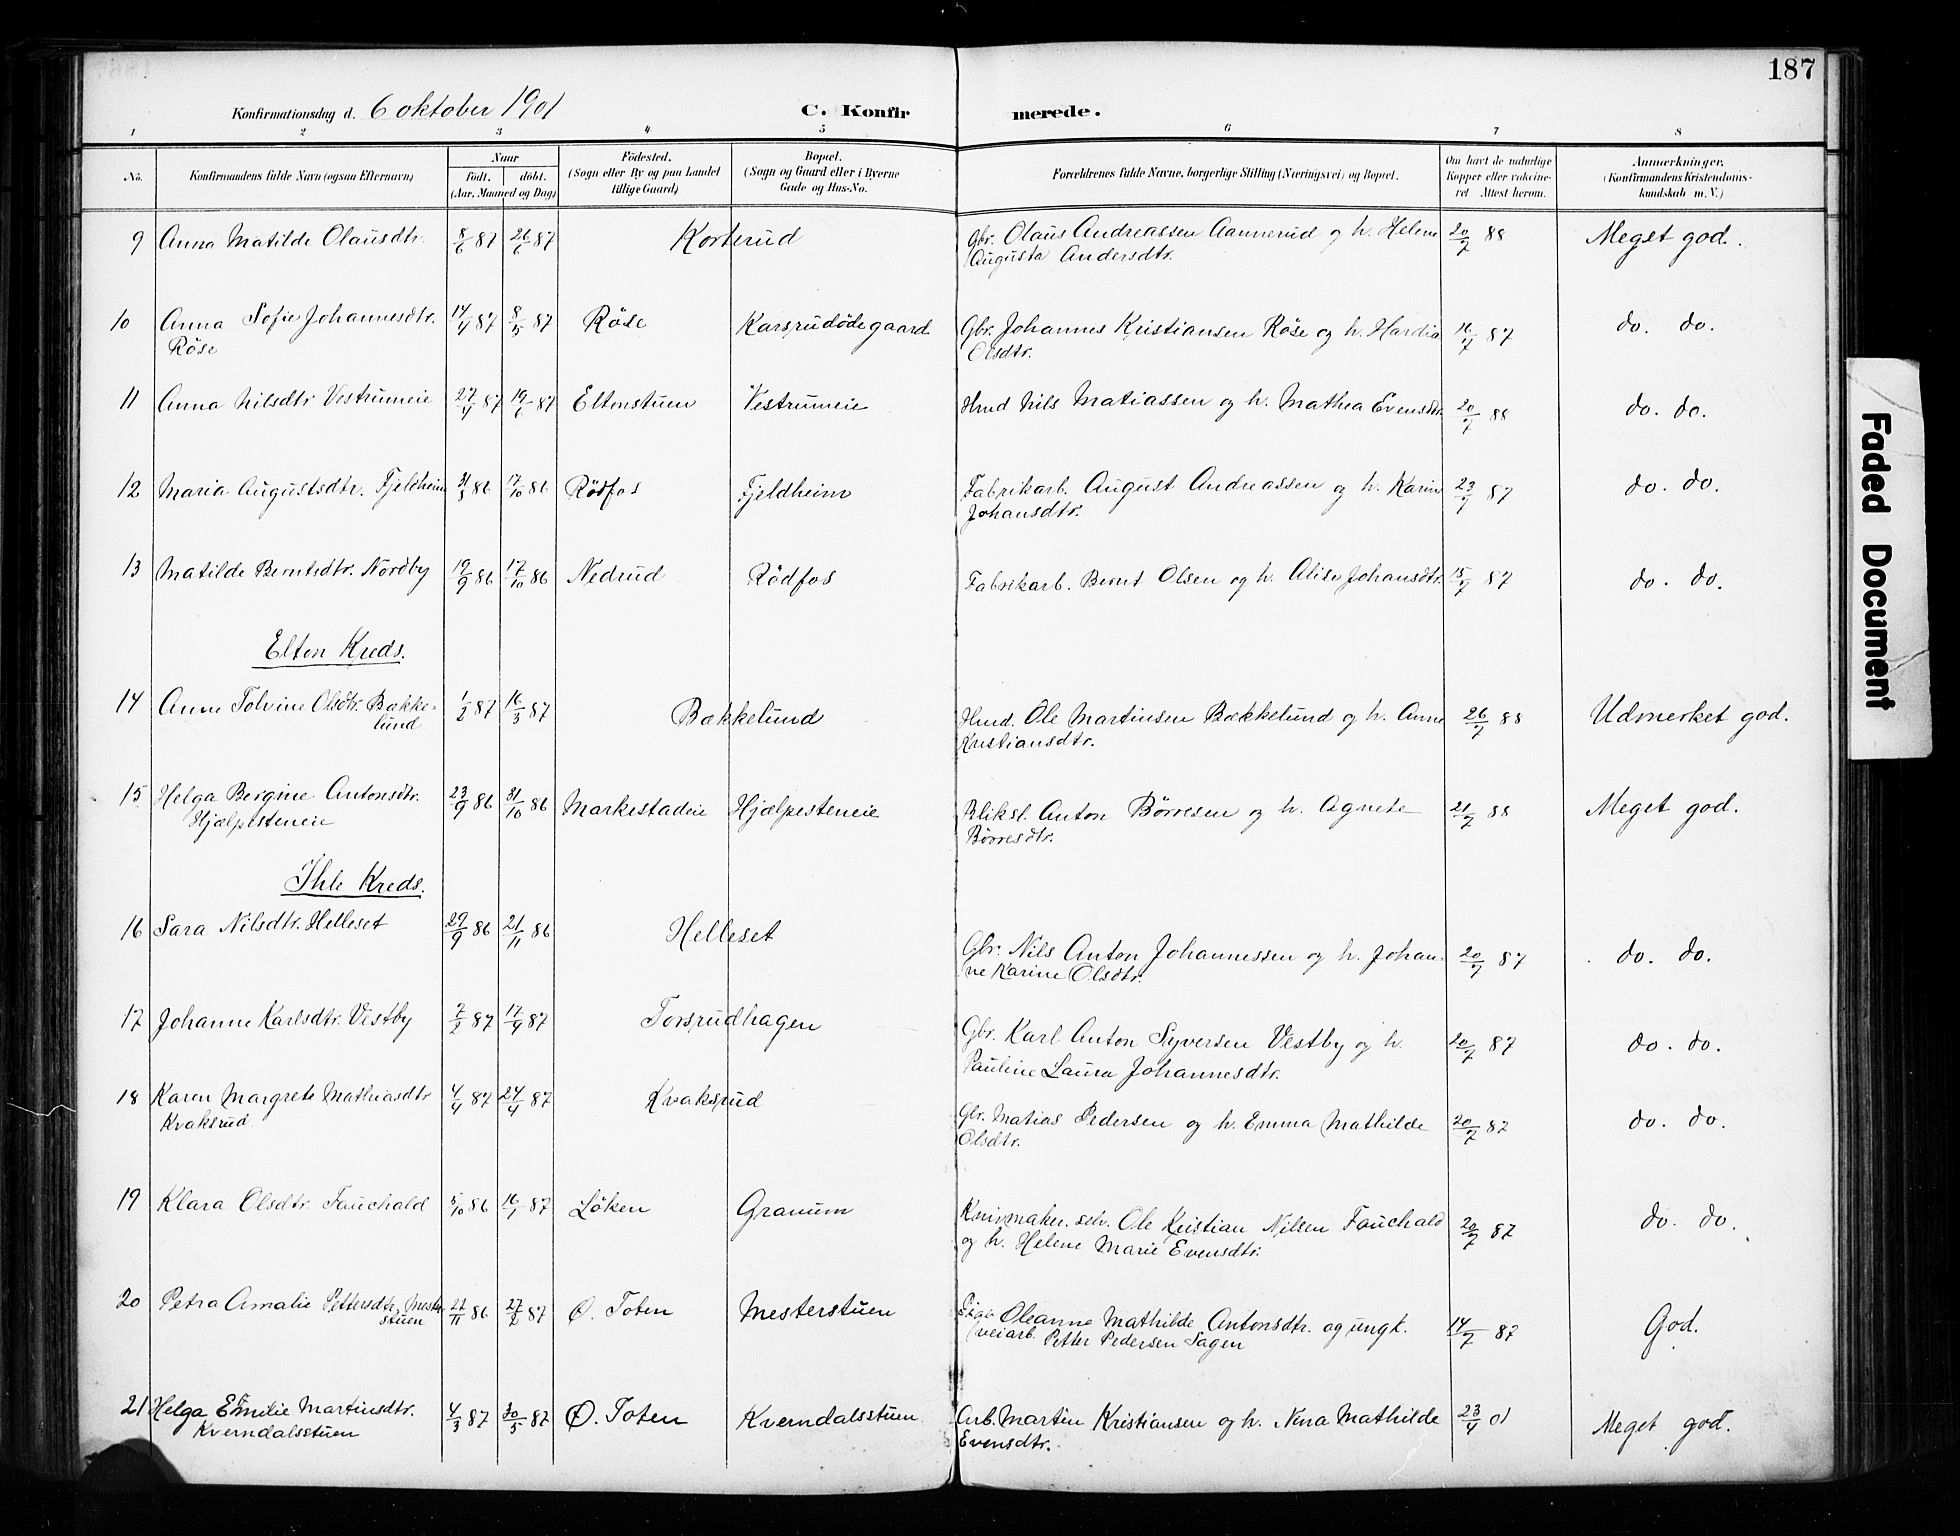 187
Konfirmationsdag d. 6 oktober 1901 C. Konfirmerede.
1 2 3 4 5 6 7 8
No. Konfirmandens fulde Navn (ogsaa Efternavn) Naar födt. döbt. (Aar, Maaned og Dag) Födested. (Sogn eller By og paa Landet tillige Gaard) Bopæl. (Sogn og Gaard eller i Byerne Gade og Hus-No. Forældrenes fulde Navne, borgerlige Stilling (Næringsvei) og Bopæl. Om havt de naturlige Kopper eller vakcineret Attest herom. Anmærkninger. (Konfirmandens Kristendomskundskab m. V.)
9 Anna Matilde Olausdtr. 8/6 87 26/6 87 Korterud Gbr. Olaus Andreassen Aannerud og h. Helene 20/7 88 Meget god.
Augusta Andersdtr.
10 Anna Sofie Johannesdtr. 14/4 87 8/5 87 Röse Karsrudödegaard Gbr. Johannes Kristiansen Röse og h. Hardia 16/7 87 do. do.
Röse Olsdtr.
11 Anna Nilsdtr Vestrumeie 27/4 87 19/6 87 Eltonstuen Vestrumeie Hmd Nils Matiassen og h. Mathea Evensdtr. 20/7 88 do. do.
12 Maria Augustsdtr. Fjeldheim 31/5 86 17/10 86 Rödfos Fjeldheim Fabrikarb. August Andreassen og h. Karine 23/7 87 do. do.
Johansdtr.
13 Matilde Berntsdtr. Nordby 19/9 86 17/10 86 Nedrud Rödfos Fabrikarb. Bernt Olsen og h. Alise Johansdtr. 15/7 87 do. do.
Elton Kreds.
14 Anne Tolvine Olsdtr. Bække- 1/2 87 16/3 87 Bækkelund Hmd. Ole Martinsen Bækkelund og h. Anne 26/7 88 Udmerket god.
lund Kristiansdtr.
15 Helga Bergine Antonsdtr. 23/9 86 31/10 86 Markestadeie Hjælpesteneie Bliksl. Anton Börresen og h. Agnete 21/7 88 Meget god.
Hjælpesteneie Börresdtr.
Ihle Kreds.
16 Sara Nilsdtr. Helleset 29/9 86 21/11 86 Helleset Gbr. Nils Anton Johannessen og h. Johan- 20/7 87 do. do.
ne Karine Olsdtr.
17 Johanne Karlsdtr. Vestby 7/2 87 17/4 87 Torsrudhagen Gbr. Karl Anton Syversen Vestby og h. 20/7 87 do. do.
Pauline Laura Johannesdtr.
18 Karen Margrete Mathiasdtr 4/4 87 24/4 87 Kvaksrud Gbr. Matias Pedersen og h. Emma Mathilde 20/7 87 do. do.
Kvaksrud Olsdtr.
19 Klara Olsdtr. Fauchald 5/10 86 16/1 87 Löken Granum Knivmaker. selv. Ole Kristian Nilsen Fauchald 20/7 87 do. do.
og h. Helene Marie Evensdtr.
20 Petra Amalie Pettersdtr. Mester- 21/11 86 27/2 87 Ø. Toten Mesterstuen Pige Oleanne Mathilde Antonsdtr. og ungk. 14/7 87 God.
stuen veiarb. Petter Pedersen Sagen
21 Helga Emilie Martinsdtr. 4/3 87 30/5 87 Ø. Toten Kverndalsstuen Arb. Martin Kristiansen og h. Nina Mathilde 23/4 01 Meget god.
Kverndalsstuen Evensdtr.
Faded Document